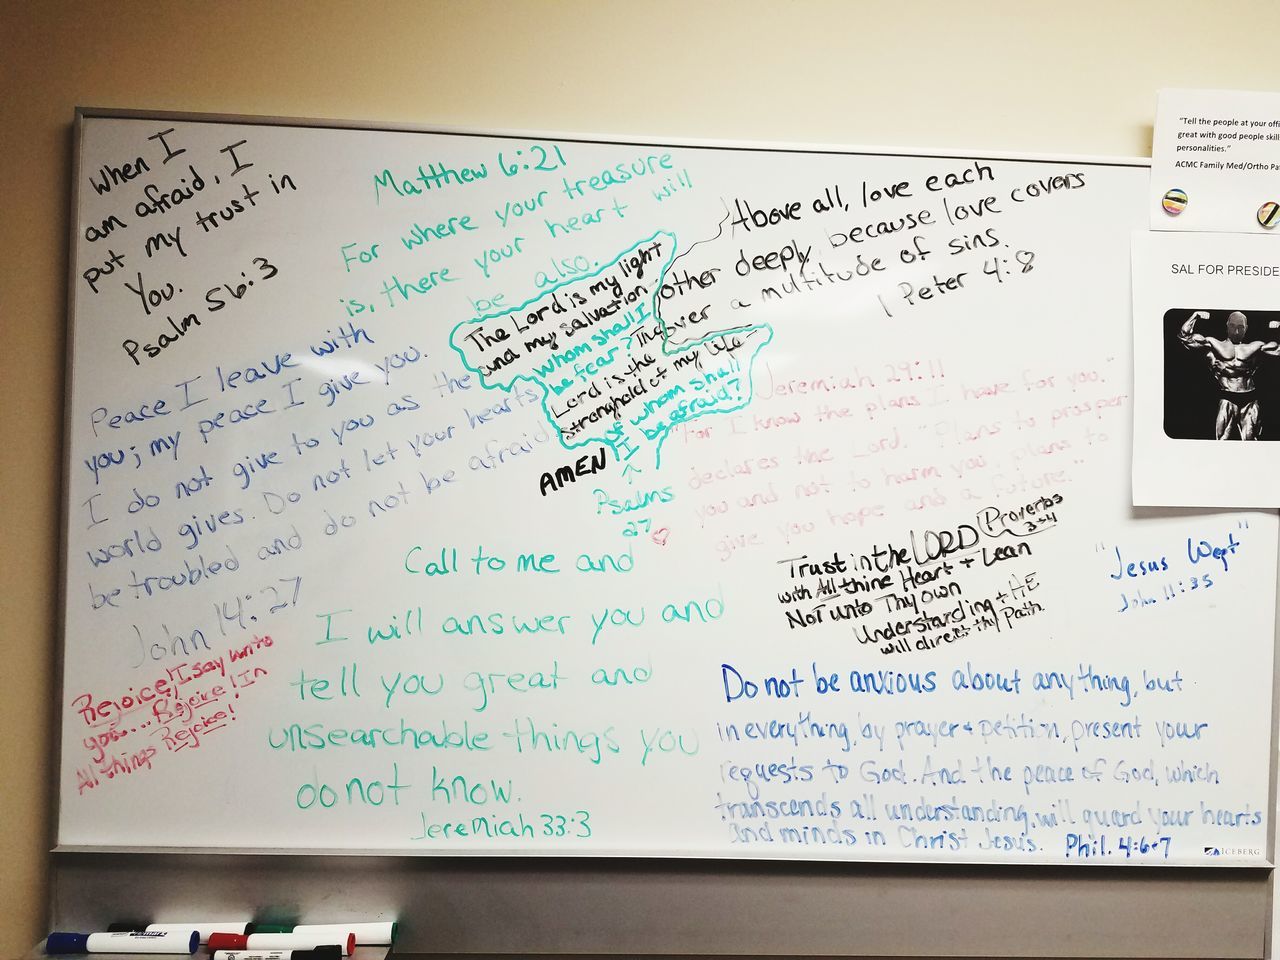 When I
am afraid, I
put my trust in
You.
Psalm 56:3
Matthew 6:21
For where your treasure
is, there your heart will
be also.
Above all, love each
other deeply, because love covers
over a multitude of sins.
1 Peter 4:8
The Lord is my light
and my salvation
whom shall I
be fear? The
Lord is the
stronghold of my life
of whom shall
I be afraid?
AMEN
Psalms
27
Peace I leave with
you; my peace I give you.
I do not give to you as the
world gives. Do not let your hearts
be troubled and do not be afraid
John 14:27
Jeremiah 29:11
"For I know the plans I have for you,"
declares the Lord. "Plans to prosper
you and not to harm you, plans to
give you hope and a future."
Trust in the LORD Proverbs
3-4
with All thine Heart + Lean
Not unto Thy own
Understanding + HE
will direct thy Path.
"Jesus Wept"
John 11:35
Rejoice! I say unto
you.... Rejoice! In
All things Rejoice!
Call to me and
I will answer you and
tell you great and
unsearchable things you
do not know.
Jeremiah 33:3
Do not be anxious about anything, but
in everything, by prayer + petition, present your
requests to God. And the peace of God, which
transcends all understanding, will guard your hearts
and minds in Christ Jesus. Phil. 4:6+7
ICEBERG
"Tell the people at your offi
great with good people skill
personalities."
ACMC Family Med/Ortho Pa
SAL FOR PRESIDE